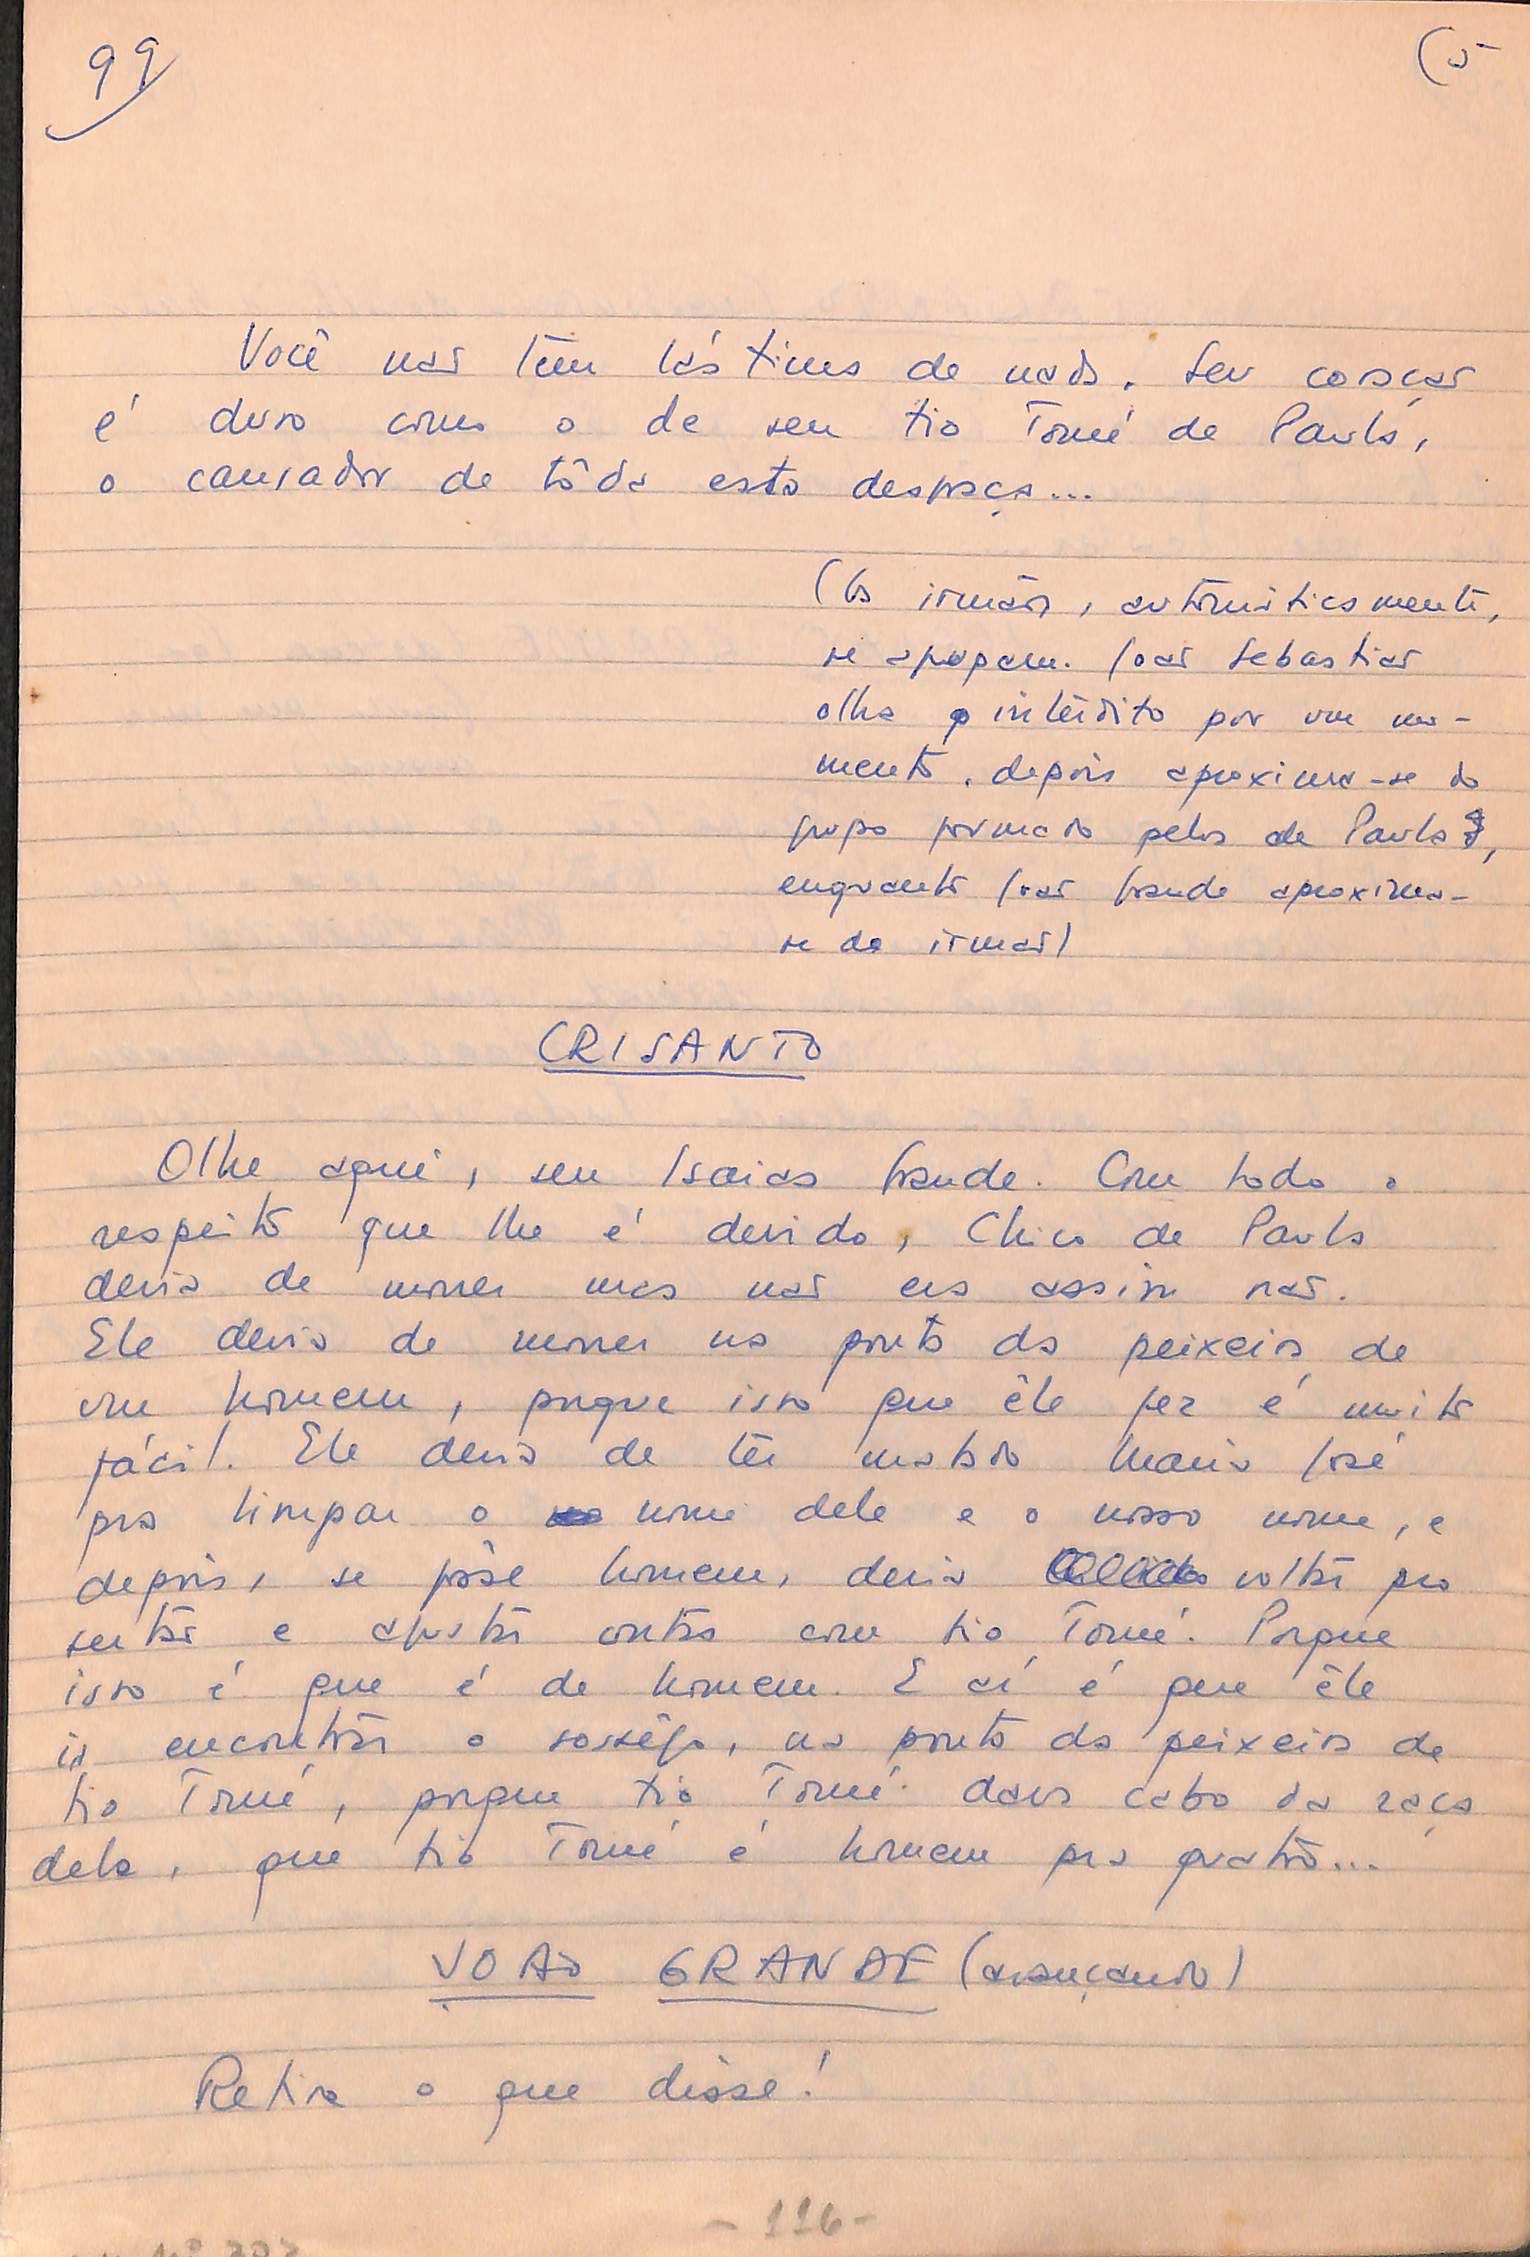 99
(5
Você não tem lástima de nada. Seu coração
é duro como o de seu tio Tomé de Paula,
o causador de tôda esta desgraça...
(Os irmãos, automáticamente,
se agrupam. João Sebastião
olha interdito por um mo-
mento, depois aproxima-se do
grupo formado pelos de Paula,
enquanto João Grande aproxima-
se da irmã)
CRISANTO
Olhe aqui, seu Isaias Grande. Com todo o
respeito que lhe é devido, Chico de Paula
devia de morrer mas não era assim não.
Ele devia de morrer na ponta da peixeira de
um homem, porque isso que êle fez é muito
fácil. Ele devia de ter matado Maria José
pra limpar o nome dele e o nosso nome, e
depois, se fôsse homem, devia voltar pro
sertão e ajustar contas com tio Tomé. Porque
isso é que é de homem. E aí é que êle
ia encontrar o sossêgo, na ponta da peixeira de
tio Tomé, porque tio Tomé dava cabo da raça
dele, que tio Tomé é homem pra quatro...
JOÃO GRANDE (avançando)
Retire o que disse!
- 116 -